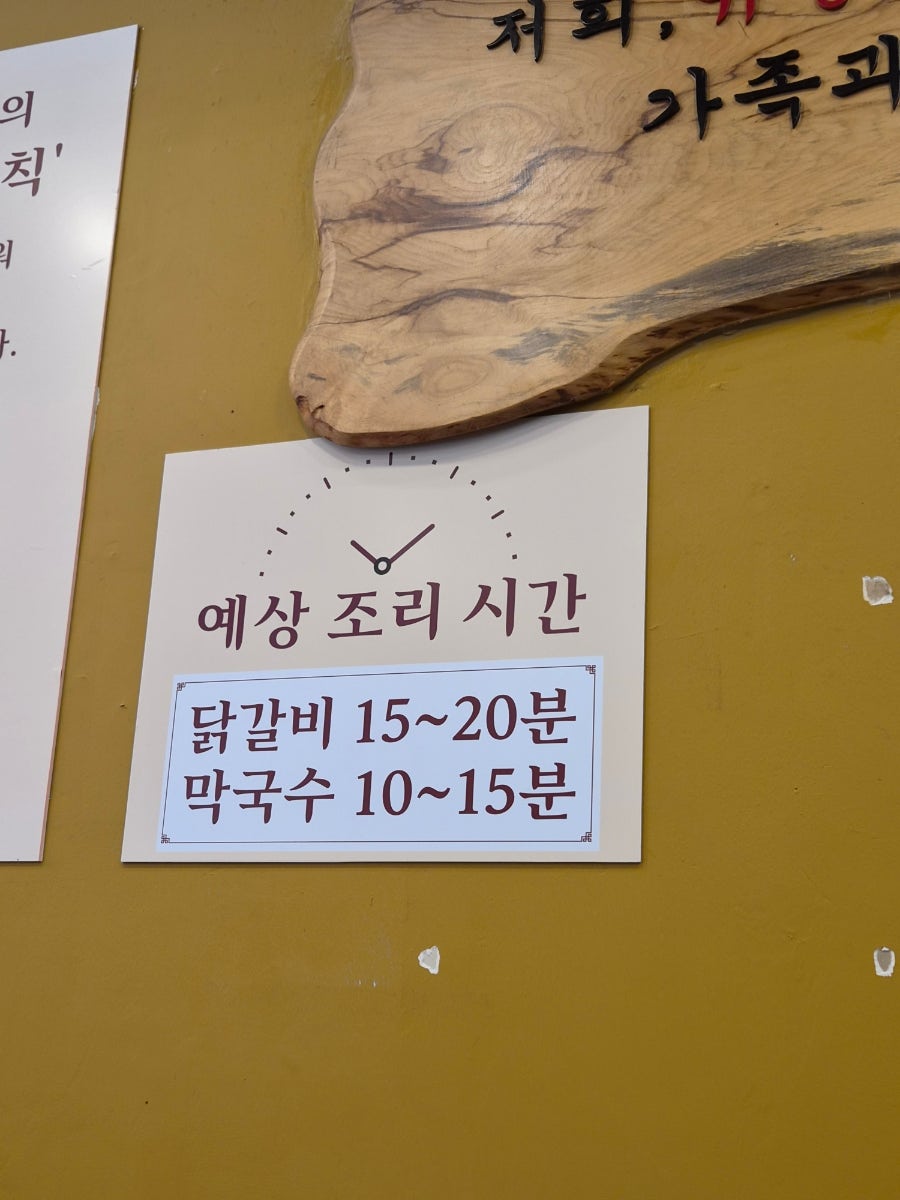 의
칙'
저희,
가족과
예상 조리 시간
닭갈비 15~20분
막국수 10~15분